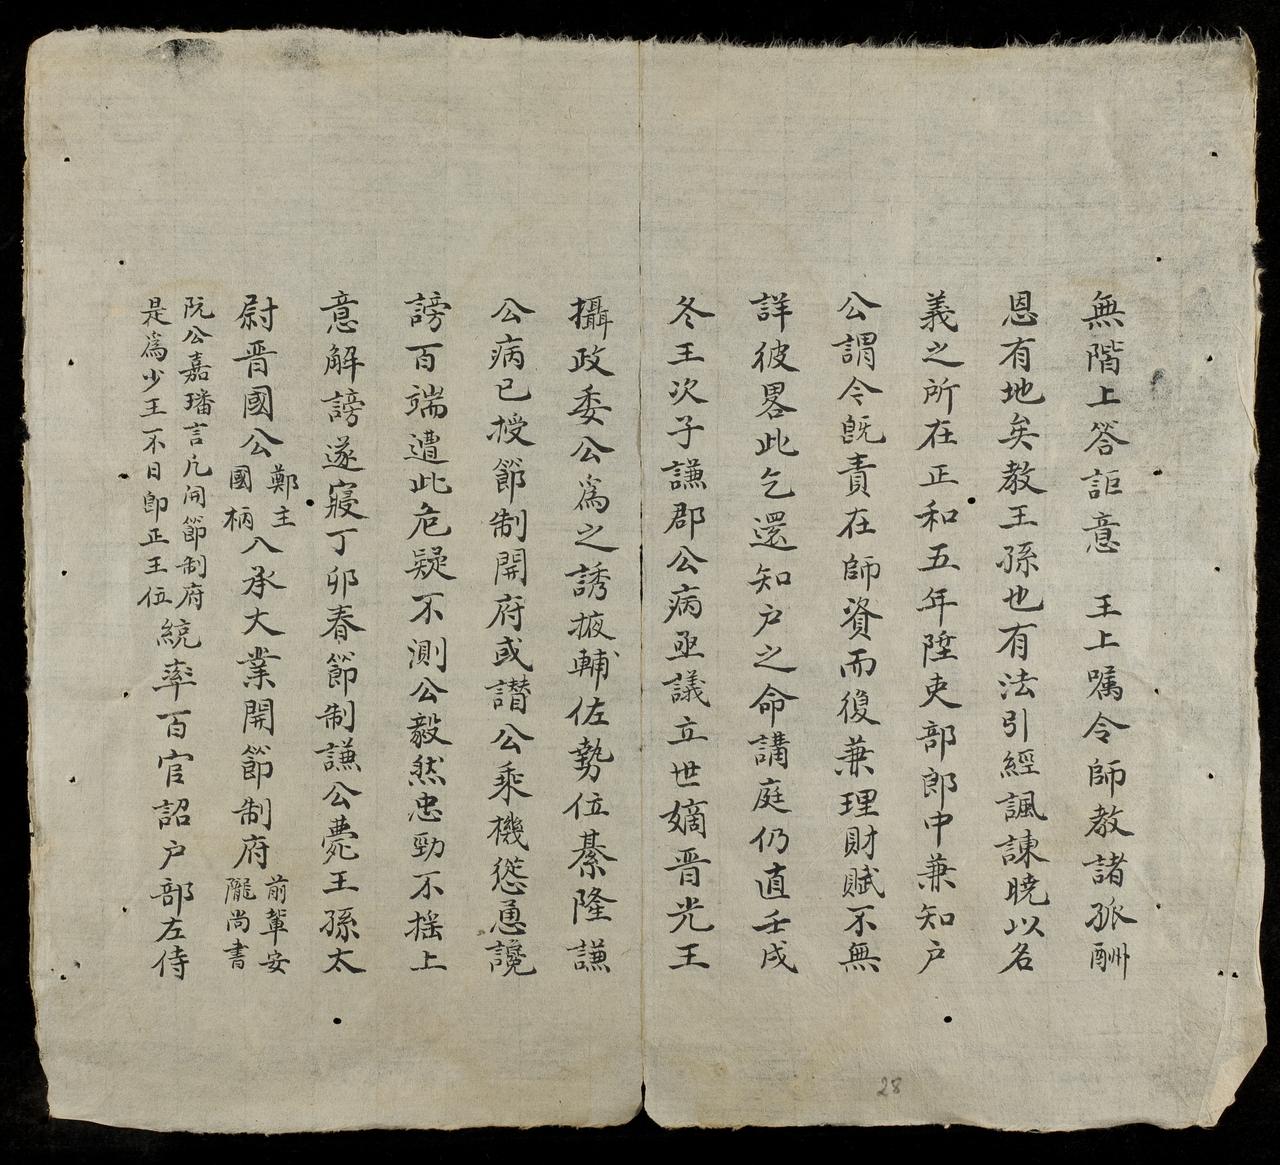 無階上答詎意　王上嘱令師教諸孤酬
恩有地矣教王孫也有法引經諷諫曉以名
義之所在正和五年陞吏部郎中兼知户
公謂令既責在師資而復兼理財賦不無
詳彼畧此乞還知户之命講庭仍直壬戌
冬王次子謙郡公病亟議立世嫡晋光王
攝政委公爲之誘掖輔佐勢位綦隆謙
公病已授節制開府或譖公乘機慫恿讒
謗百端遭此危疑不測公毅然忠勁不摇上
意解謗遂寢丁卯春節制謙公薨王孫太
尉晋國公鄭主國柄入承大業開節制府前輩安隴尚書
阮公嘉璠言凡開節制府是爲少王不日即正王位統率百官詔户部左侍
28